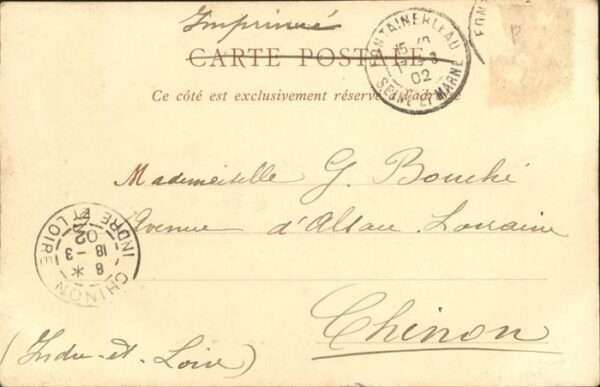 Imprimé
CARTE POSTALE
FONTAINEBLEAU
02
SEINE ET MARNE
Ce côté est exclusivement réservé à l'adresse
Mademoiselle G. Bouché
Avenue d'Alsace Lorraine
CHINON
INDRE ET LOIRE
8 *
18 -3
02
Chinon
(Indre-et-Loire)